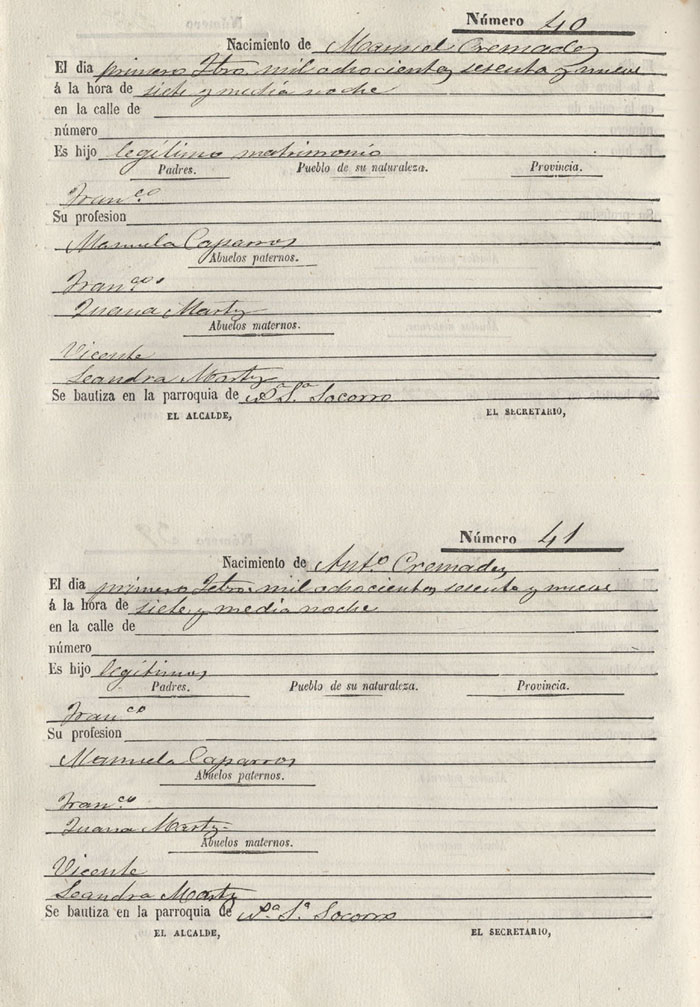 Número 40
Nacimiento de Manuel Cremades
El dia primero Fbro. mil ochocientos sesenta y nueve
á la hora de siete y media noche
en la calle de
número
Es hijo legítimo matrimonio
Padres. Pueblo de su naturaleza. Provincia.
Franco
Su profesion
Manuela Caparros
Abuelos paternos.
Franco
Juana Martz
Abuelos maternos.
Vicente
Leandra Martz
Se bautiza en la parroquia de Na Sa Socorro
EL ALCALDE, EL SECRETARIO,
Número 41
Nacimiento de Anto Cremades
El dia primero Fbro. mil ochocientos sesenta y nueve
á la hora de siete y media noche
en la calle de
número
Es hijo legítimos
Padres. Pueblo de su naturaleza. Provincia.
Franco
Su profesion
Manuela Caparros
Abuelos paternos.
Franco
Juana Martz
Abuelos maternos.
Vicente
Leandra Martz
Se bautiza en la parroquia de Na Sa Socorro
EL ALCALDE, EL SECRETARIO,